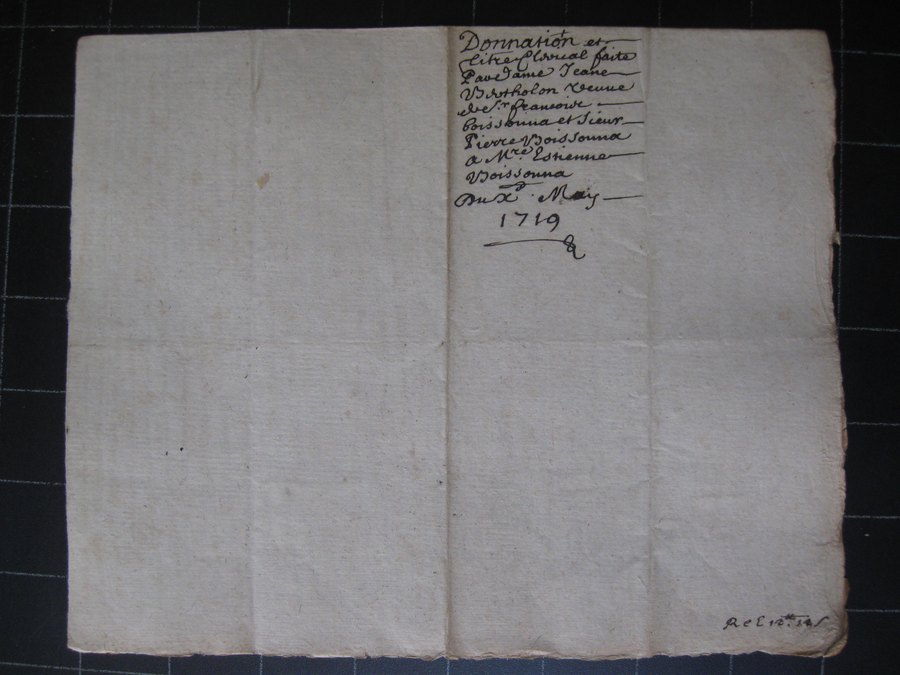 Donnation et
titre Clerical faite
Par dame Jeane
Bertholon veuve
de Sr. francois
boissonna et Sieur
Pierre Boissonna
a Mre Estienne
Boissonna
Du Xe May
1719